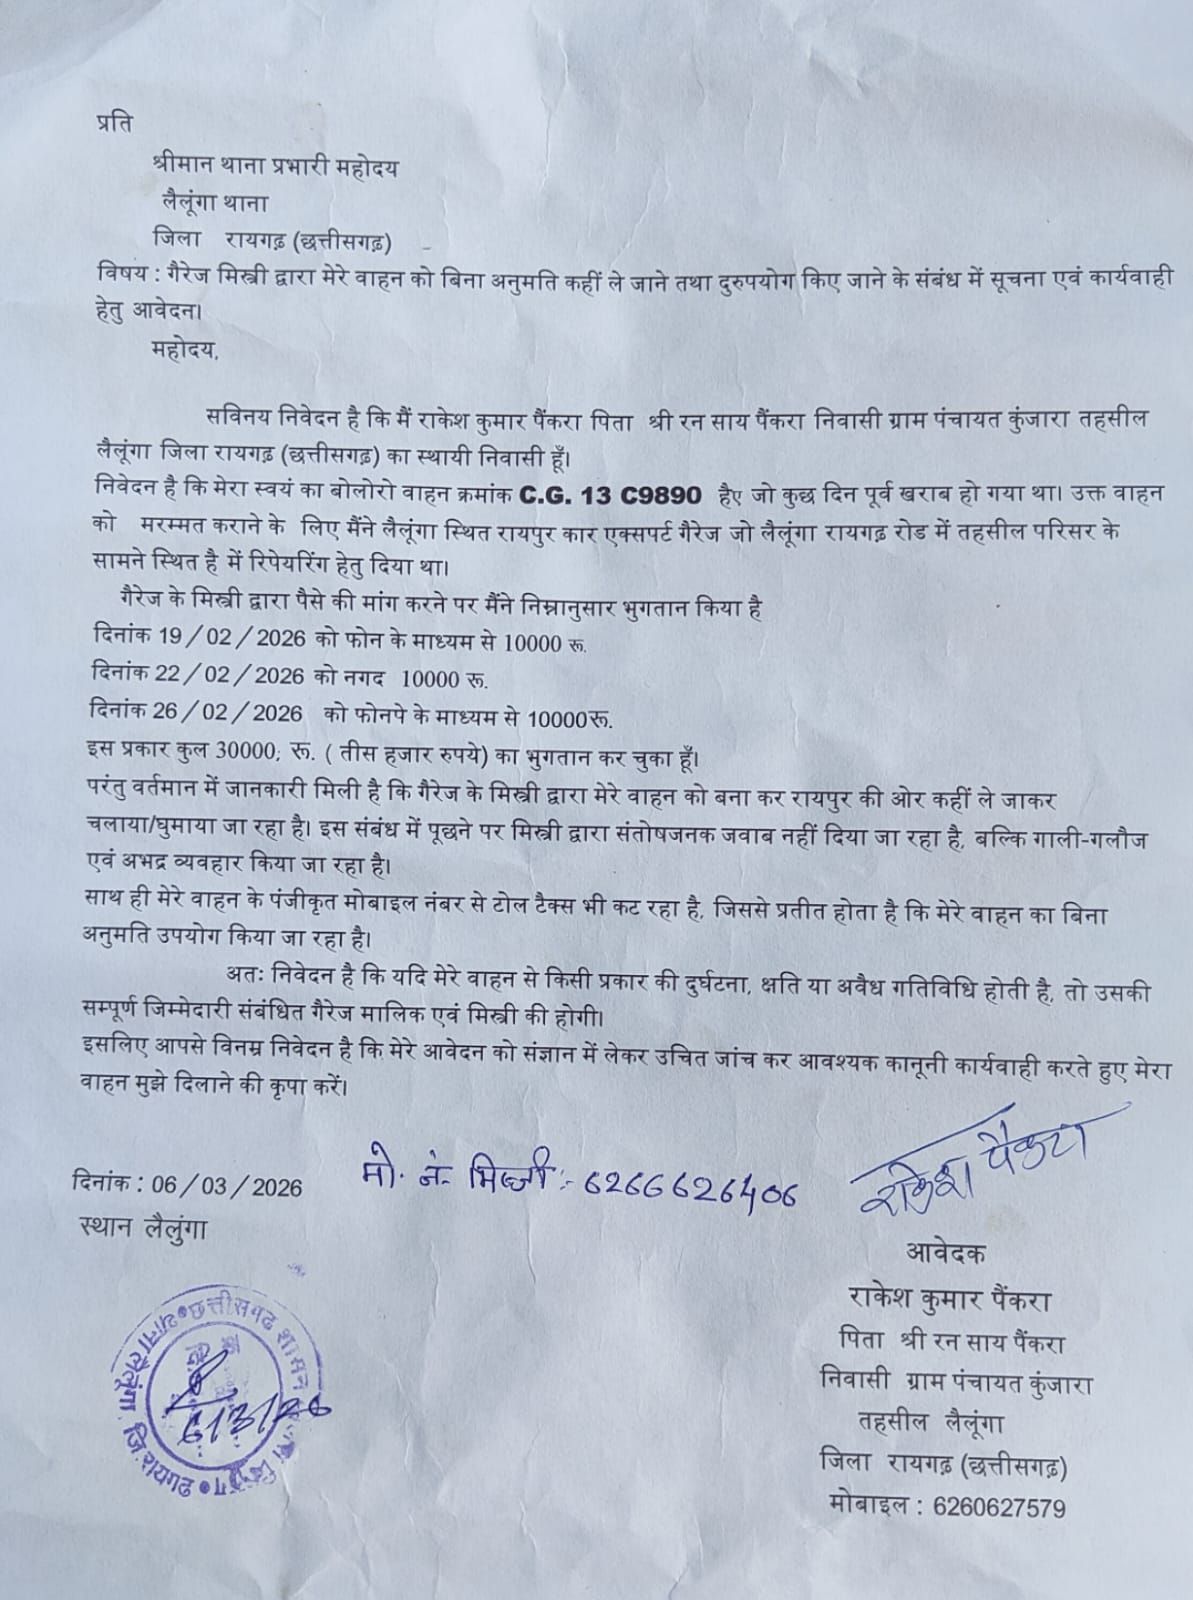 प्रति
श्रीमान थाना प्रभारी महोदय
लैलूंगा थाना
जिला रायगढ़ (छत्तीसगढ़)
विषय : गैरेज मिस्त्री द्वारा मेरे वाहन को बिना अनुमति कहीं ले जाने तथा दुरुपयोग किए जाने के संबंध में सूचना एवं कार्यवाही
हेतु आवेदन।
महोदय,
सविनय निवेदन है कि मैं राकेश कुमार पैंकरा पिता श्री रन साय पैंकरा निवासी ग्राम पंचायत कुंजारा तहसील
लैलूंगा जिला रायगढ़ (छत्तीसगढ़) का स्थायी निवासी हूँ।
निवेदन है कि मेरा स्वयं का बोलोरो वाहन क्रमांक C.G. 13 C9890 हैए जो कुछ दिन पूर्व खराब हो गया था। उक्त वाहन
को मरम्मत कराने के लिए मैंने लैलूंगा स्थित रायपुर कार एक्सपर्ट गैरेज जो लैलूंगा रायगढ़ रोड में तहसील परिसर के
सामने स्थित है में रिपेयरिंग हेतु दिया था।
गैरेज के मिस्त्री द्वारा पैसे की मांग करने पर मैंने निम्नानुसार भुगतान किया है
दिनांक 19/02/2026 को फोन के माध्यम से 10000 रू.
दिनांक 22/02/2026 को नगद 10000 रू.
दिनांक 26/02/2026 को फोनपे के माध्यम से 10000रू.
इस प्रकार कुल 30000; रू. ( तीस हजार रुपये) का भुगतान कर चुका हूँ।
परंतु वर्तमान में जानकारी मिली है कि गैरेज के मिस्त्री द्वारा मेरे वाहन को बना कर रायपुर की ओर कहीं ले जाकर
चलाया/घुमाया जा रहा है। इस संबंध में पूछने पर मिस्त्री द्वारा संतोषजनक जवाब नहीं दिया जा रहा है, बल्कि गाली-गलौज
एवं अभद्र व्यवहार किया जा रहा है।
साथ ही मेरे वाहन के पंजीकृत मोबाइल नंबर से टोल टैक्स भी कट रहा है, जिससे प्रतीत होता है कि मेरे वाहन का बिना
अनुमति उपयोग किया जा रहा है।
अतः निवेदन है कि यदि मेरे वाहन से किसी प्रकार की दुर्घटना, क्षति या अवैध गतिविधि होती है, तो उसकी
सम्पूर्ण जिम्मेदारी संबंधित गैरेज मालिक एवं मिस्त्री की होगी।
इसलिए आपसे विनम्र निवेदन है कि मेरे आवेदन को संज्ञान में लेकर उचित जांच कर आवश्यक कानूनी कार्यवाही करते हुए मेरा
वाहन मुझे दिलाने की कृपा करें।
राकेश पैंकरा
मो. नं. मिस्त्री :- 6266626406
दिनांक : 06/03/2026
स्थान लैलुंगा
आवेदक
राकेश कुमार पैंकरा
पिता श्री रन साय पैंकरा
निवासी ग्राम पंचायत कुंजारा
तहसील लैलूंगा
जिला रायगढ़ (छत्तीसगढ़)
मोबाइल : 6260627579
छत्तीसगढ शासन
थाना लैलूंगा, जि.रायगढ
6/3/26